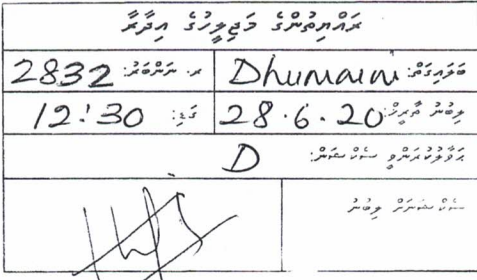 ރައްޔިތުންގެ މަޖިލީހުގެ އިދާރާ
ބަލައިގަތް: Dhumaini ރ. ނަންބަރު: 2832
ލިބުނު ތާރީޚް: 28.6.20 ގަޑި: 12:30
ޙަވާލުކުރަންވީ ސެކްޝަން: D
ސެކްޝަނަށް ލިބުނު